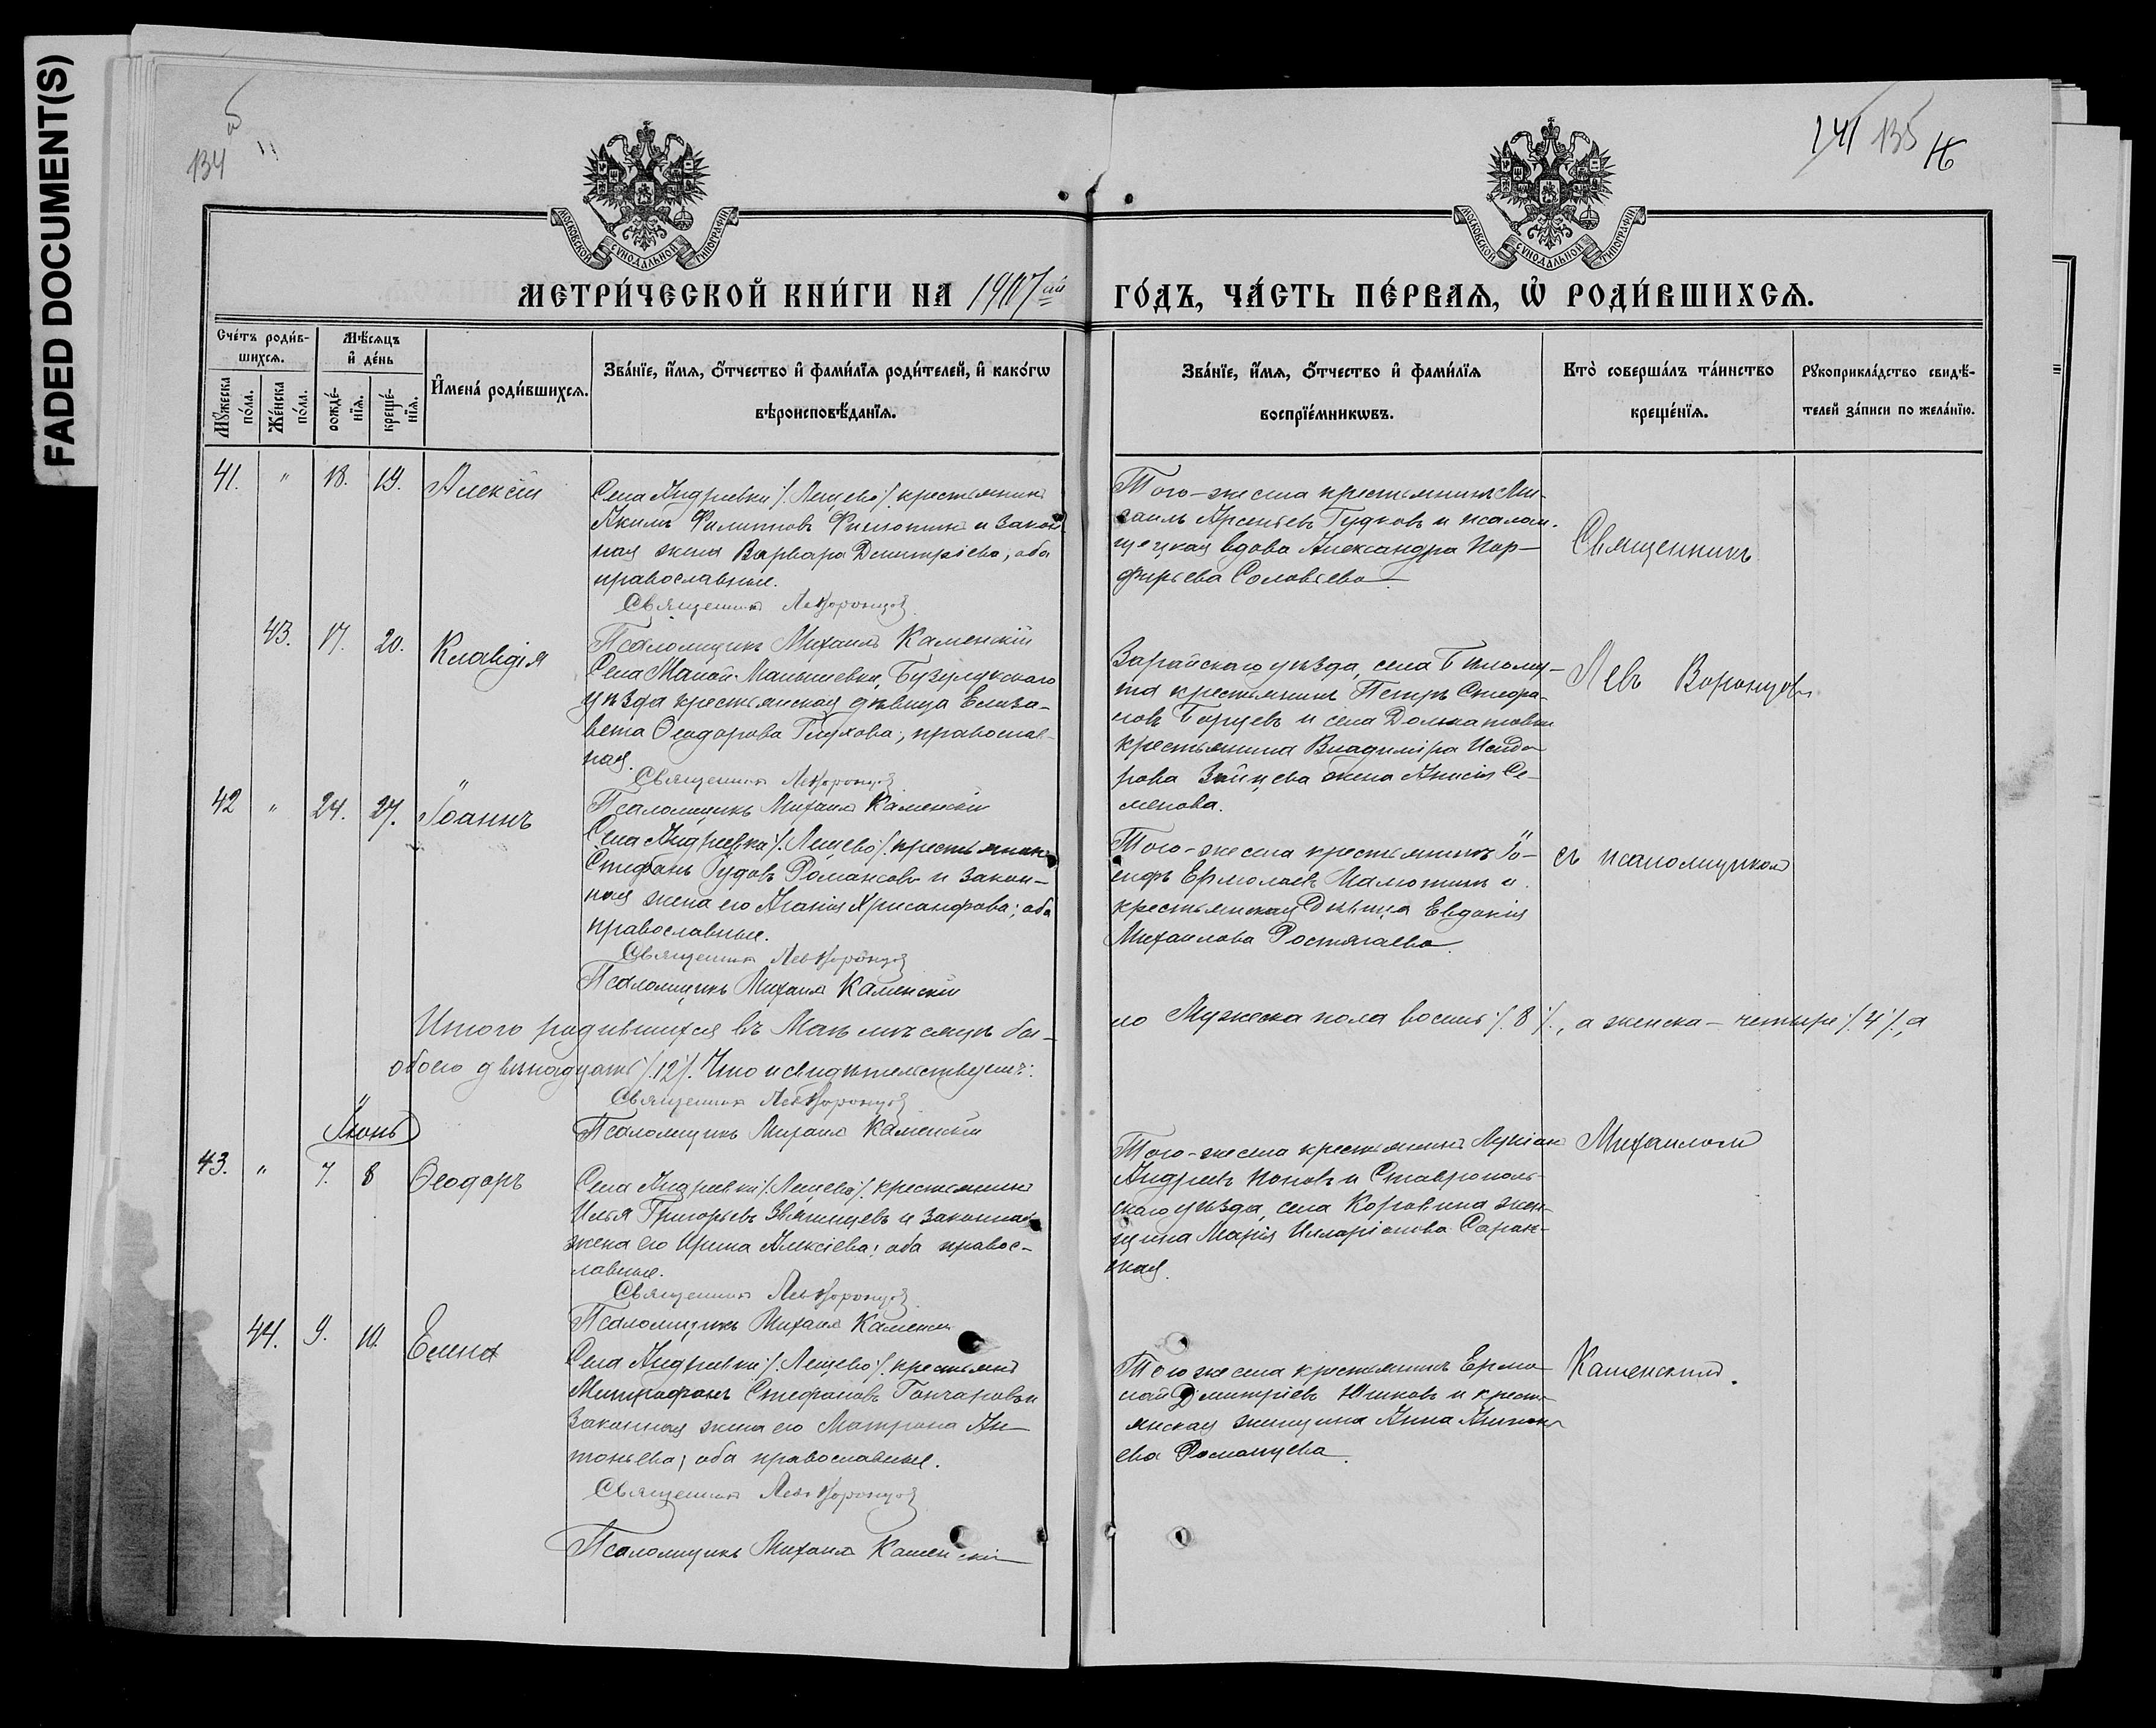 FADED DOCUMENT(S)
134
141 135 16
МОСКОВСКОЙ СѴНОДАЛЬНОЙ ТИПОГРАФІИ
МОСКОВСКОЙ СѴНОДАЛЬНОЙ ТИПОГРАФІИ
МЕТРИ́ЧЕСКОЙ КНИ́ГИ НА 1907й
ГО́ДЪ, ЧА́СТЬ ПЕ́РВАЯ, Ѡ҆ РОДИ́ВШИХСЯ.
Сче́тъ роди́в-
шихся.
Мꙋ́жеска по́ла.
Же́нска по́ла.
Мѣ́сяцъ
и҆ де́нь
рожде́нїя.
креще́нїя.
И҆мена́ роди́вшихся.
Зва́нїе, и҆́мя, ѻ҆́тчество и҆ фами́лїя роди́телей, и҆ како́гѡ
вѣроисповѣ́данїя.
Зва́нїе, и҆́мя, ѻ҆́тчество и҆ фами́лїя
воспрїе́мникѡвъ.
Кто̀ соверша́лъ та́инство
креще́нїя.
Рꙋкоприкла́дство свидѣ́-
телей за́писи по жела́нїю.
41. " 18. 19. Алексій
Села Андреевки /. Лещево /. крестьянинъ
Акимъ Филипповъ и закон
ная жена Варвара Димитріева, оба
православные.
Священникъ Левъ Воронцов
Псаломщикъ Михаилъ Каменскій
Того-же села крестьянинъ Ми-
хаилъ Арсеньевъ Гудковъ и псалом-
щецкая вдова Александра Пор-
фирьева Соловьева.
Священникъ
43. 17. 20. Клавдія
Села Малой-Малышевки, Бузулукскаго
уѣзда крестьянская дѣвица Елиза-
вета Ѳеодорова Глухова, православ-
ная.
Священникъ Левъ Воронцов
Псаломщикъ Михаилъ Каменскій
Зарайскаго уѣзда, села Бѣлому-
та крестьянинъ Петръ Стефа-
новъ и села
крестьянина Владиміра Исидо-
рова Зайцева жена Анисія Се-
менова.
Левъ Воронцовъ
42 " 24. 27. Іоаннъ
Села Андреевки /. Лещево /. крестьянинъ
Стефанъ Романсовъ и закон-
ная жена его Агапія Хрисанфова; оба
православные.
Священникъ Левъ Воронцов
Псаломщикъ Михаилъ Каменскій
Того-же села крестьянинъ Іо-
сифъ Ермолаевъ и
крестьянская дѣвица Евдокія
Михаилова Ростягаева.
съ псаломщикомъ
Итого родившихся въ Маѣ мѣсяцѣ бы-
ло Мужеска пола восемь /. 8 /., а женска – четыре /. 4 /., а
обоего двѣнадцать /. 12 /. Что и свидѣтельствуемъ:
Священникъ Левъ Воронцов
Псаломщикъ Михаилъ Каменскій
Іюнь
43. " 7. 8 Ѳеодоръ
Села Андреевки /. Лещево /. крестьянинъ
Илья Григорьевъ Звягинцевъ и законная
жена его Ирина Алексіева; оба правос-
лавные.
Священникъ Левъ Воронцов
Псаломщикъ Михаилъ Каменскій
Того-же села крестьянинъ Лукіанъ
Андреевъ Поповъ и Ставрополь-
скаго уѣзда, села Коровина жен-
щина Марія Илларіонова Саран-
ская.
Михаиломъ
44. 9. 10. Елена
Села Андреевки /. Лещево /. крестьянинъ
Митрофанъ Стефановъ Гончаровъ и
законная жена его Матрона Ан-
тоньева; оба православные.
Священникъ Левъ Воронцов
Псаломщикъ Михаилъ Каменскій
Того же села крестьянинъ Ермо-
лай Димитріевъ Юшковъ и кресть-
янская женщина Анна
ева Романцева.
Каменскимъ.